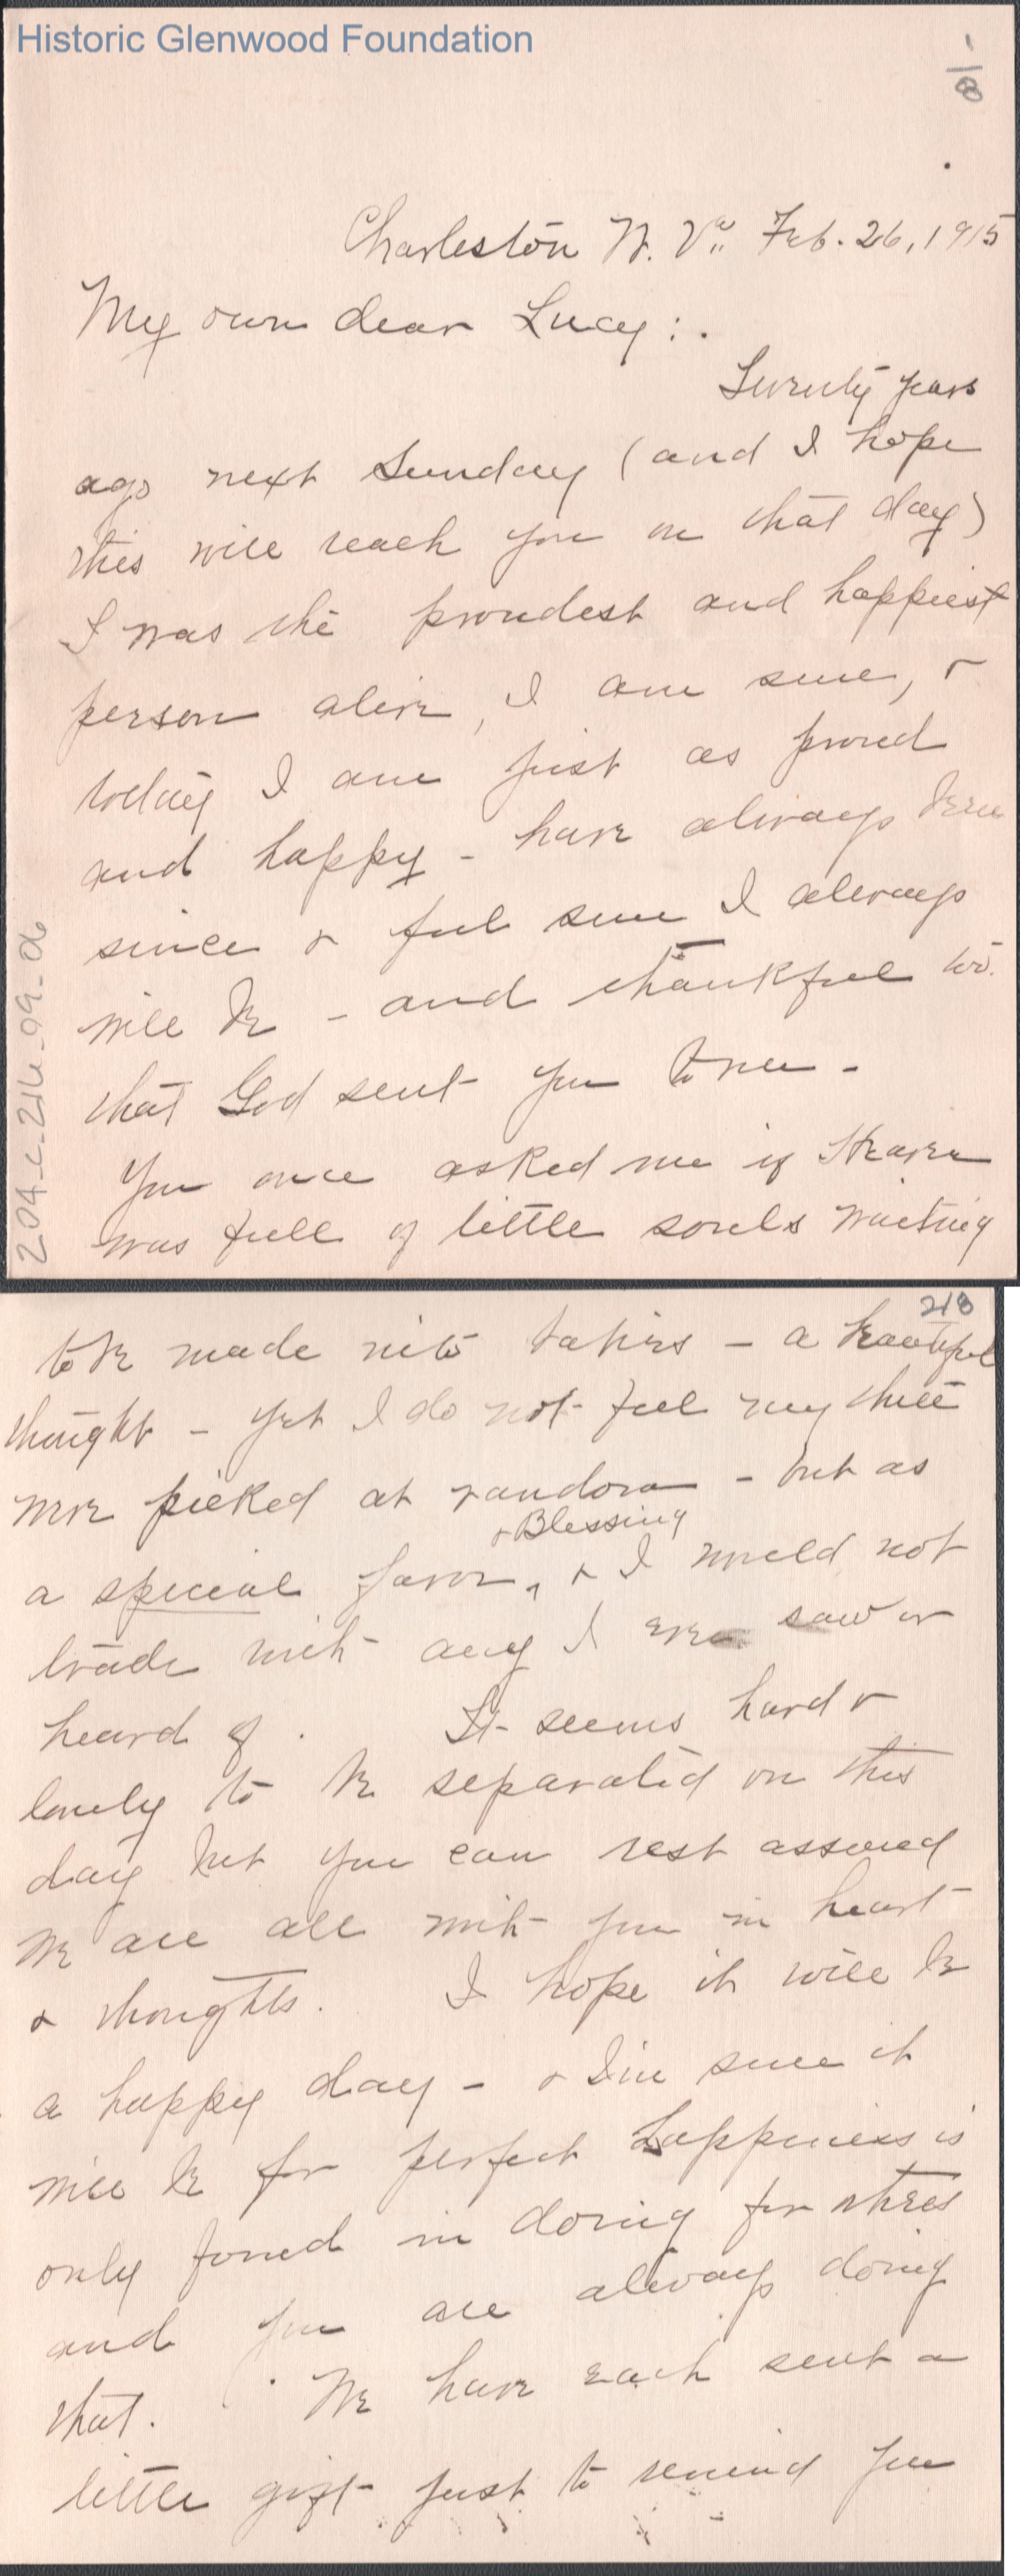 Historic Glenwood Foundation
1/8
Charleston W. Va. Feb. 26, 1915
My own dear Lucy:.
Twenty years
ago next Sunday (and I hope
this will reach you on that day)
I was the proudest and happiest
person alive, I am sure, &
today I am just as proud
and happy - have always been
since & feel sure I always
will be - and thankful too.
that God sent you to me -
You once asked me if Heaven
was full of little souls waiting
204-c-216-99-06
2/8
to be made into babies - a beautiful
thought - yet I do not feel my three
were picked at random - but as
& Blessing
a special favor, & I would not
trade with any I ever saw or
heard of. It seems hard &
lonely to be separated on this
day but you can rest assured
we are all with you in heart
& thoughts. I hope it will be
a happy day - & I'm sure it
will be for perfect happiness is
only found in doing for others
and you are always doing
that. We have each sent a
little gift just to remind you